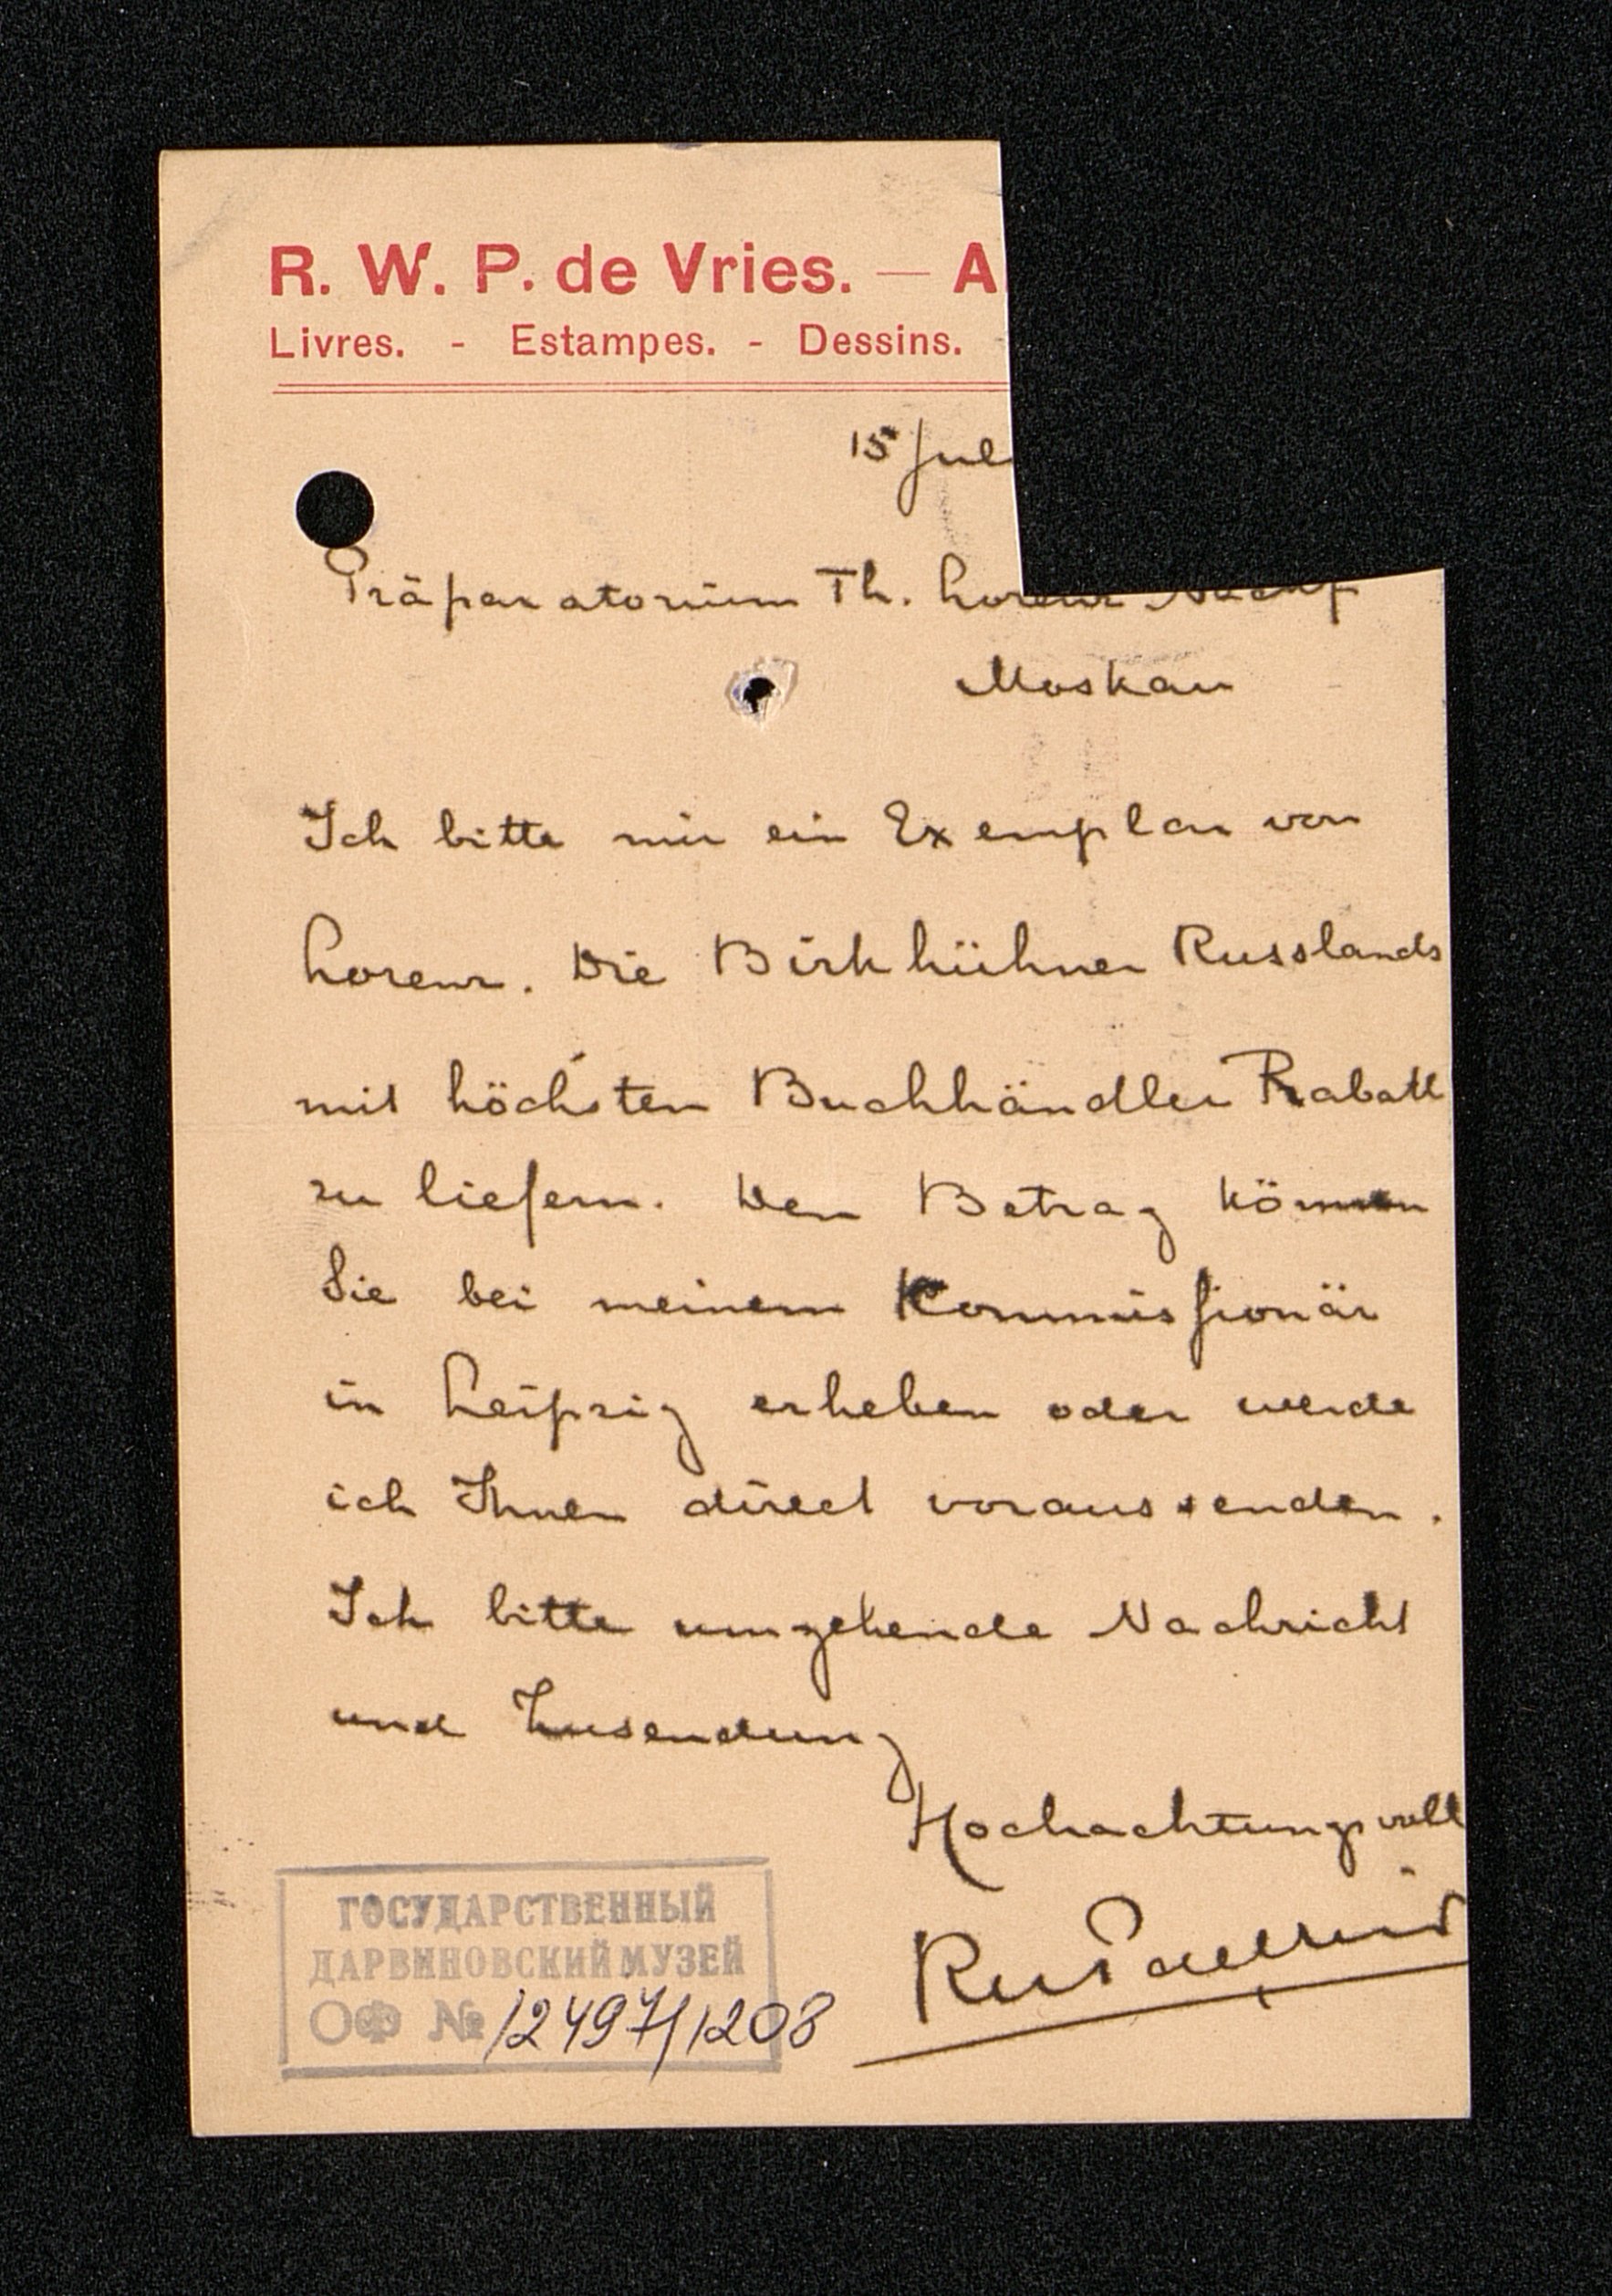 R. W. P. de Vries. — A
Livres. - Estampes. - Dessins.
15 Jul
Präparatorium Th. Lorenz Nachf
Moskau
Ich bitte mir ein Exemplar von
Lorenz. Die Birkhühner Russlands
mit höchsten Buchhändler Rabatt
zu liefern. Den Betrag können
Sie bei meinem Kommissionär
in Leipzig erheben oder werde
ich Ihnen direct voraussenden.
Ich bitte umgehende Nachricht
und Zusendung
Hochachtungsvoll
ГОСУДАРСТВЕННЫЙ
ДАРВИНОВСКИЙ МУЗЕЙ
ОФ № 12497/1208